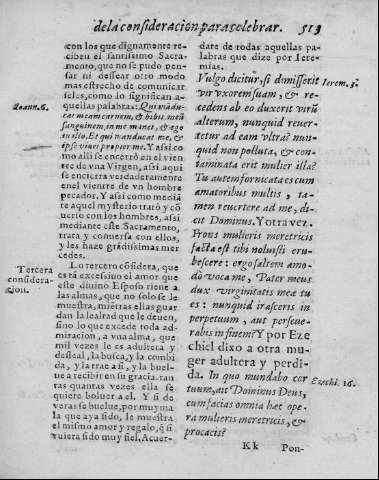 de la consideracion para celebrar. 513
con los que dignamente re-
ciben el santissimo Sacra-
mento, que no se pudo pen-
sar ni dessear otro modo
mas estrecho de comunicar
seles, como lo significan a-
quellas palabras: Qui mãdu-
cat meam carnem, & bibit meũ
sanguinem, in me manet, & ego
in illo. Et qui manducat me, &
ipse vivet propter me. Y assi co
mo alli se encerrò en el vien-
tre de vna Virgen, assi aqui
se encierra verdaderamente
en el vientre de vn hombre
pecador. Y assi como mediã
te aquel mysterio tratò y cõ
uersò con los hombres, assi
mediante este Sacramento,
trata y conuersa con ellos,
y les haze grãdissimas mer
cedes.
Ioann. 6.
Lo tercero cõsidera, que
es tã excessiuo el amor que
este diuino Esposo tiene a
las almas, que no solo se le
muestra, miẽtras ellas guar-
dan la lealtad que le deuen,
sino lo que excede toda ad-
miracion, a vna alma, que
mil vezes le es adultera y
desleal, la busca, y la combi
da, y la trae a si, y la buel-
ue a recibir en su gracia. tan
tas quantas vezes ella se
quiere boluer a el. Y si de
veras se buelue, por muy ma
la que aya sido, le muestra
el mismo amor y regalo, q̃ si
vuiera sido muy fiel. Acuer-
Tercera
considera-
cion.
date de todas aquellas pa-
labras que dize por Iere-
mias.
Vulgo dicitur, si dimisserit
vir vxorem suam, & re-
cedens ab eo duxerit virũ
alterum, nunquid reuer-
tetur ad eam vltra? nun-
quid non polluta, & con-
taminata erit mulier illa?
Tu autem fornicata es cum
amatoribus multis, ta-
men reuertere ad me, di-
cit Dominus. Y otra vez.
Frons mulieris meretricis
facta est tibi noluisti eru-
bescere: ergo saltem amo-
dò voca me, Pater meus
dux virginitatis meæ tu
es: nunquid irasceris in
perpetuum, aut perseue-
rabis in finem? Y por Eze
chiel dixo a otra mu-
ger adultera y perdi-
da. In quo mundabo cor
tuum, ait Dominus Deus,
cum facias omnia hæc ope-
ra mulieris meretricis, &
procacis?
Ierem. 3.
Ezechi. 16.
Kk Pon-